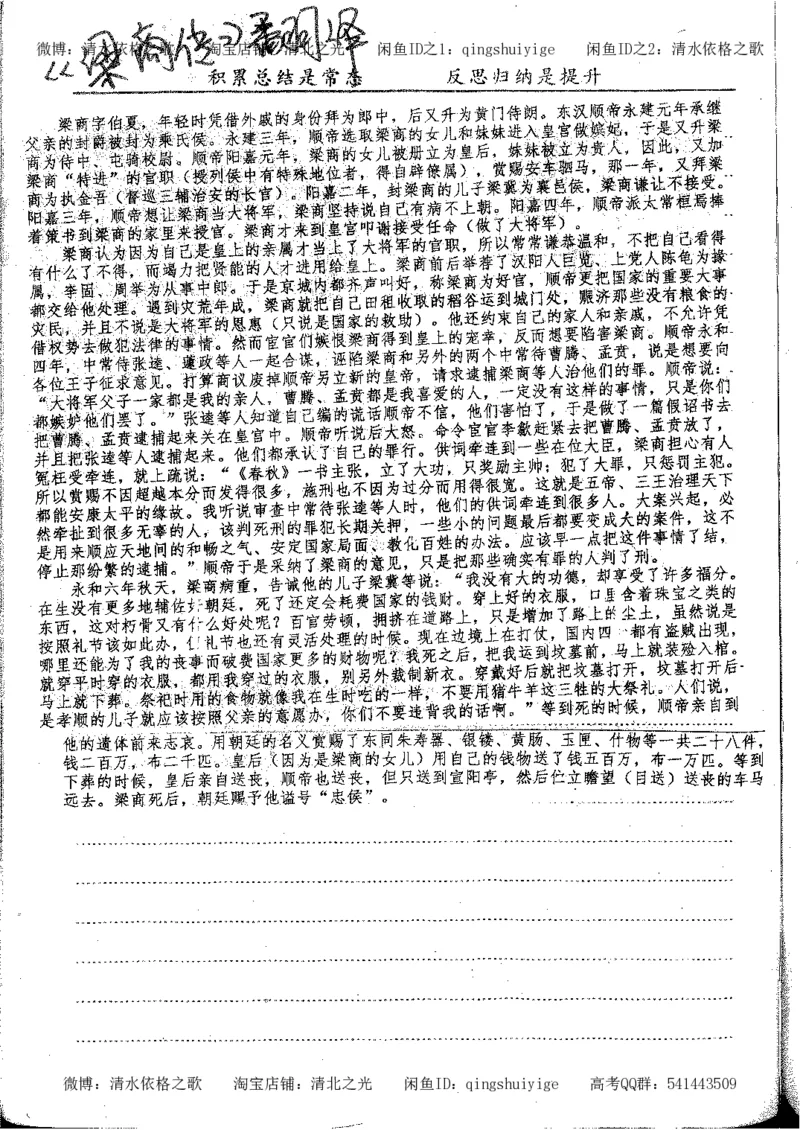 微博：清水依格之歌 淘宝店铺：清北之光 闲鱼ID之1：qingshuiyige 闲鱼ID之2：清水依格之歌
《梁商传》翻译
积累总结是常态 反思归纳是提升
梁商字伯夏，年轻时凭借外戚的身份拜为郎中，后又升为黄门侍朗。东汉顺帝永建元年承继
父亲的封爵被封为乘氏侯。永建三年，顺帝选取梁商的女儿和妹妹进入皇宫做嫔妃，于是又升梁
商为侍中、屯骑校尉。顺帝阳嘉元年，梁商的女儿被册立为皇后，妹妹被立为贵人，因此，又加
梁商“特进”的官职（授列侯中有特殊地位者，得自辟僚属），赏赐安车驷马，那一年，又拜梁
商为执金吾（督巡三辅治安的长官）。阳嘉二年，封梁商的儿子梁冀为襄邑侯，梁商谦让不接受。
阳嘉三年，顺帝想让梁商当大将军，梁商坚持说自己有病不上朝。阳嘉四年，顺帝派太常桓焉捧
着策书到梁商的家里来授官。梁商才来到皇宫叩谢接受任命（做了大将军）。
梁商认为因为自己是皇上的亲属才当上了大将军的官职，所以常常谦恭温和，不把自己看得
有什么了不得，而竭力把贤能的人才进用给皇上。梁商前后举荐了汉阳人巨览、上党人陈龟为掾
属，李固、周举为从事中郎。于是京城内都齐声叫好，称梁商为好官，顺帝更把国家的重要大事
都交给他处理。遇到灾荒年成，梁商就把自己田租收取的稻谷运到城门处，赈济那些没有粮食的
灾民，并且不说是大将军的恩惠（只说是国家的救助）。他还约束自己的家人和亲戚，不允许凭
借权势去做犯法律的事情。然而宦官们嫉恨梁商得到皇上的宠幸，反而想要陷害梁商。顺帝永和
四年，中常侍张逵、蘧政等人一起合谋，诬陷梁商和另外的两个中常侍曹腾、孟贲，说是想要向
各位王子征求意见。打算商议废掉顺帝另立新的皇帝，请求逮捕梁商等人治他们的罪。顺帝说：
“大将军父子一家都是我的亲人，曹腾、孟贲都是我喜爱的人，一定没有这样的事情，只是你们
都嫉妒他们罢了。”张逵等人知道自己编的谎话顺帝不信，他们害怕了，于是做了一篇假诏书去
把曹腾、孟贲逮捕起来关在皇宫中。顺帝听说后大怒。命令宦官李歙赶紧去把曹腾、孟贲放了，
并且把张逵等人逮捕起来。他们都承认了自己的罪行。供词牵连到一些在位大臣，梁商担心有人
冤枉受牵连，就上疏说：“《春秋》一书主张，立了大功，只奖励主帅；犯了大罪，只惩罚主犯。
所以赏赐不因超越本分而发得很多，施刑也不因为过分而用得很宽。这就是五帝、三王治理天下
都能安康太平的缘故。我听说审查中常侍张逵等人时，他们的供词牵连到很多人。大案兴起，必
然牵扯到很多无辜的人，该判死刑的罪犯长期关押，一些小的问题最后都要变成大的案件，这不
是用来顺应天地间的和畅之气、安定国家局面、教化百姓的办法。应该早一点把这件事情了结，
停止那纷繁的逮捕。”顺帝于是采纳了梁商的意见，只是把那些确实有罪的人判了刑。
永和六年秋天，梁商病重，告诫他的儿子梁冀等说：“我没有大的功德，却享受了许多福分。
在生没有更多地辅佐好朝廷，死了还定会耗费国家的钱财。穿上好的衣服，口里含着珠宝之类的
东西，这对朽骨又有什么好处呢？百官劳顿，拥挤在道路上，只是增加了路上的尘土，虽然说是
按照礼节该如此办，但礼节也还有灵活处理的时候。现在边境上在打仗，国内四 都有盗贼出现，
哪里还能为了我的丧事而破费国家更多的财物呢？我死之后，把我运到坟墓前，马上就装殓入棺。
就穿平时穿的衣服，都用我穿过的衣服，别另外裁制新衣。穿戴好后就把坟墓打开，坟墓打开后
马上就下葬。祭祀时用的食物就像我在生时吃的一样，不要用猪牛羊这三牲的大祭礼。人们说，
是孝顺的儿子就应该按照父亲的意愿办，你们不要违背我的话啊。”等到死的时候，顺帝亲自到
他的遗体前来志哀。用朝廷的名义赏赐了东园朱寿器、银镂、黄肠、玉匣、什物等一共二十八件，
钱二百万，布二千匹。皇后（因为是梁商的女儿）用自己的钱物送了钱五百万，布一万匹。等到
下葬的时候，皇后亲自送丧，顺帝也送丧，但只送到宣阳亭，然后伫立瞻望（目送）送丧的车马
远去。梁商死后，朝廷赐予他谥号“忠侯”。
微博：清水依格之歌 淘宝店铺：清北之光 闲鱼ID：qingshuiyige 高考QQ群：541443509